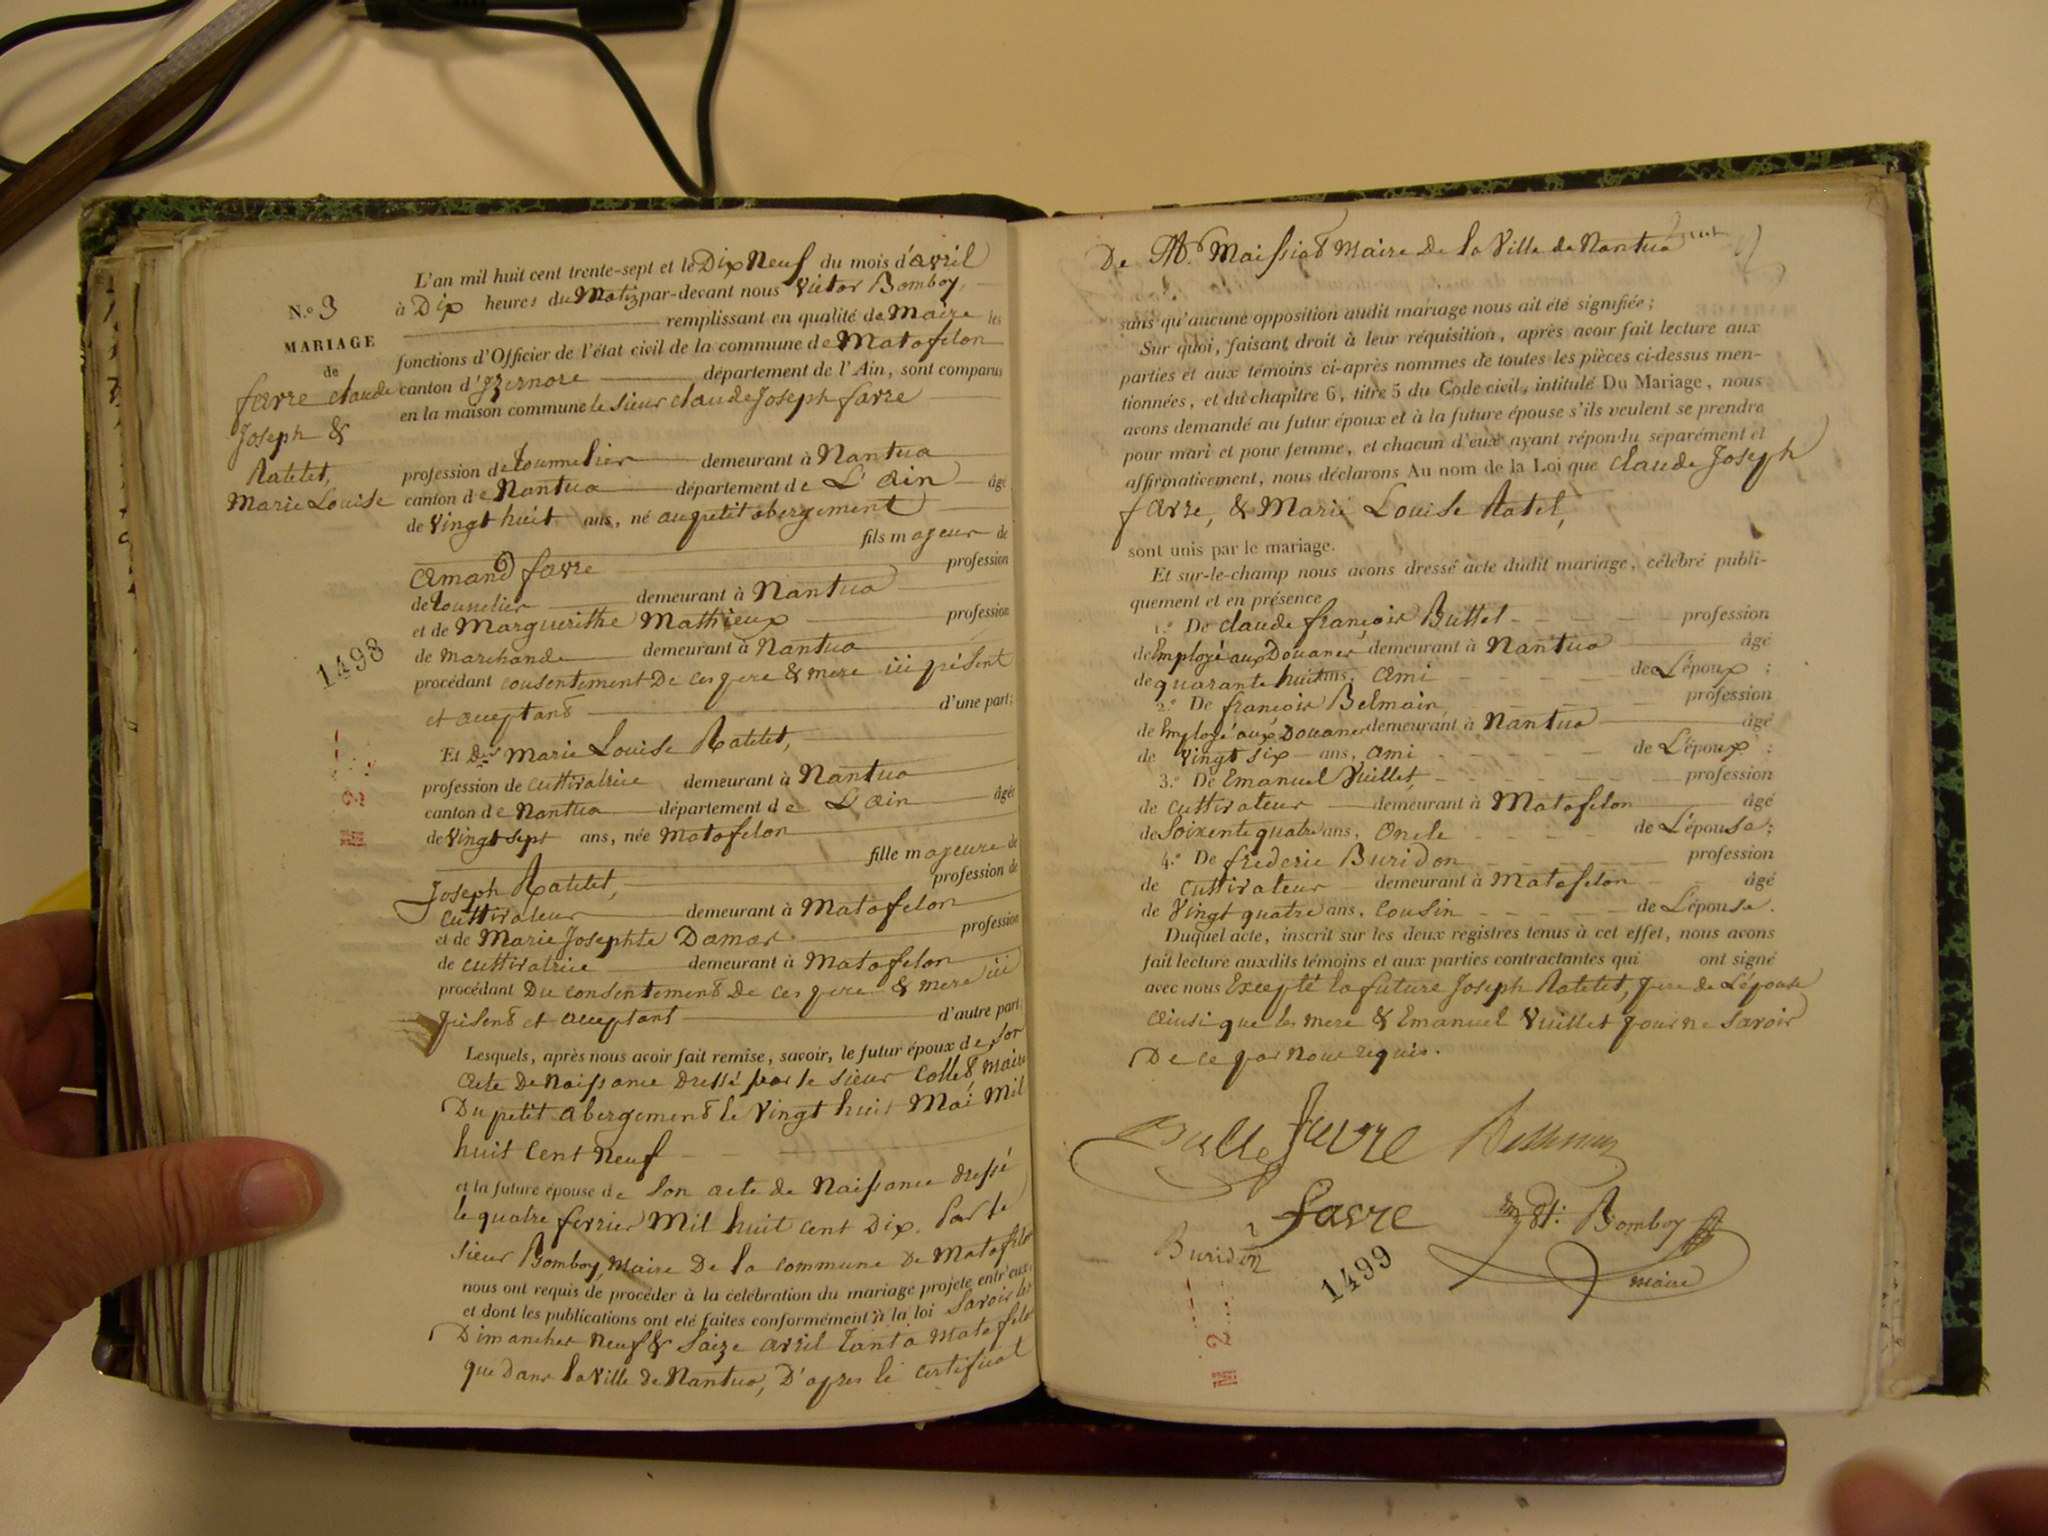 N.o 3
MARIAGE
de
favre claude
Joseph &
Ratelet,
Marie Louise
1498
L'an mil huit cent trente-sept et le Dix Neuf du mois d'avril
à Dix heures du Matin par-devant nous Victor Bomboy,
remplissant en qualité de Maire les
fonctions d'Officier de l'état civil de la commune de Matafelon
canton d'Izernore département de l'Ain, sont comparus
en la maison commune le sieur claude Joseph favre
profession de tounnelier demeurant à Nantua
canton de Nantua département de L'ain âgé
de vingt huit ans, né au petit abergement
fils majeur de
Amand favre profession
de tounelier demeurant à Nantua
et de Marguerithe Mathieux profession
de Marchande demeurant à Nantua
procédant consentement De ces pere & mere ici présent
et acceptant d'une part;
Et dlle Marie Louise Ratelet,
profession de cultivatrice demeurant à Nantua
canton de Nantua département de L'ain âgée
de vingt sept ans, née Matafelon
fille majeure de
Joseph Ratelet, profession de
cultivateur demeurant à Matafelon
et de Marie Josephte Damas profession
de cultivatrice demeurant à Matafelon
procédant Du consentement De ces pere & mere ici
présent et acceptant d'autre part;
Lesquels, après nous avoir fait remise, savoir, le futur époux de son
acte de Naissance dressé par le sieur Collet maire
Du petit abergement le vingt huit Mai Mil
huit cent neuf
et la future épouse de son acte de Naissance dressé
le quatre fevrier Mil huit cent Dix. Par le
sieur Bomboy, Maire De la commune De Matafelon
nous ont requis de procéder à la célébration du mariage projeté entr'eux
et dont les publications ont été faites conformément à la loi savoir les
Dimanches neuf & saize avril tant à Matafelon
que Dans la ville de Nantua, D'apres le certificat
De Mr. Maissiat Maire De la Ville de Nantua
sans qu'aucune opposition audit mariage nous ait été signifiée;
Sur quoi, faisant droit à leur réquisition, après avoir fait lecture aux
parties et aux témoins ci-après nommés de toutes les pièces ci-dessus men-
tionnées, et du chapitre 6, titre 5 du Code civil, intitulé Du Mariage, nous
avons demandé au futur époux et à la future épouse s'ils veulent se prendre
pour mari et pour femme, et chacun d'eux ayant répondu séparément et
affirmativement, nous déclarons Au nom de la Loi que claude Joseph
favre, & Marie Louise Ratel,
sont unis par le mariage.
Et sur-le-champ nous avons dressé acte dudit mariage, célébré publi-
quement et en présence
1.o De claude françois Buttet profession
de Employé aux Douanes demeurant à Nantua âgé
de quarante huit ans, ami de L'époux;
2.o De françois Belmain profession
de Employé aux Douanes demeurant à Nantua âgé
de vingt six ans, ami de L'époux;
3.o De Emanuel Vuillet, profession
de cultivateur demeurant à Matafelon âgé
de soixente quatre ans, oncle de L'épouse;
4.o De frederic Buridon profession
de cultivateur demeurant à Matafelon âgé
de vingt quatre ans, cousin de L'épouse.
Duquel acte, inscrit sur les deux registres tenus à cet effet, nous avons
fait lecture auxdits témoins et aux parties contractantes qui ont signé
avec nous Excepté la future Joseph Ratelet, pere de L'épouse
ainsi que la mere & Emanuel Vuillet pour ne savoir
De ce par nous requis.
favre
favre Bomboy
Buridon maire
1499